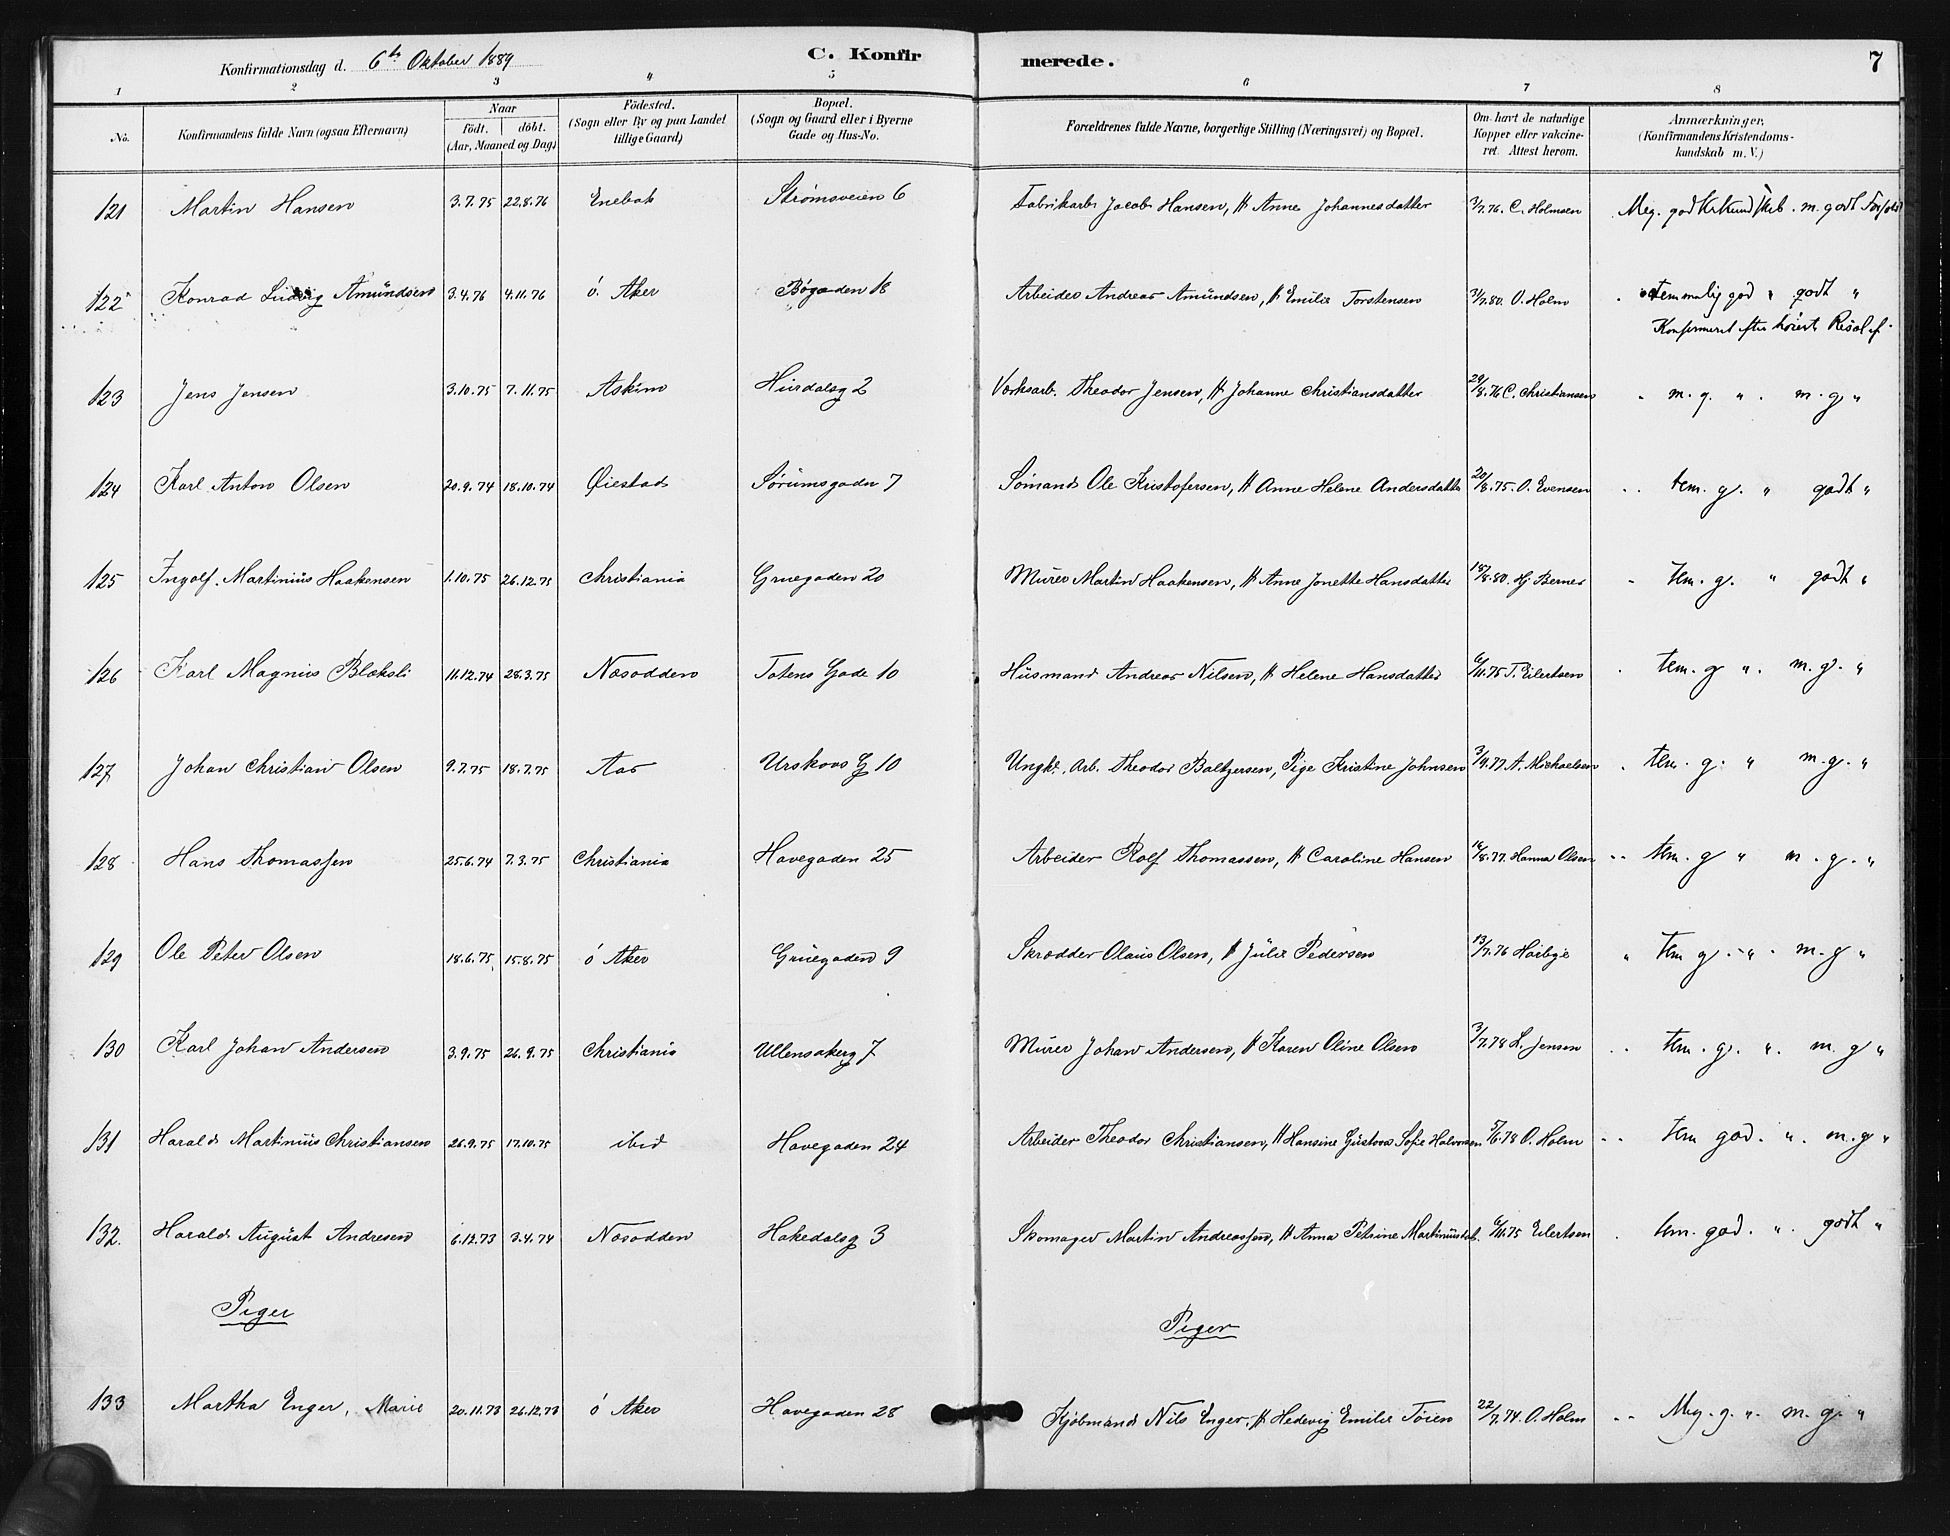 Konfirmationsdag d. 6te Oktober 1889 C. Konfir merede. 7
1 2 3 4 5 6 7 8
No. Konfirmandens fulde Navn (ogsaa Efternavn) Naar födt. döbt. (Aar, Maaned og Dag) Födested. (Sogn eller By og paa Landet tillige Gaard) Bopæl. (Sogn og Gaard eller i Byerne Gade og Hus-No. Forældrenes fulde Navne, borgerlige Stilling (Næringsvei) og Bopæl. Om havt de naturlige Kopper eller vakcineret. Attest herom. Anmærkninger, (Konfirmandens Kristendomskundskab m. V.)
121 Martin Hansen 3.7.75 22.8.76 Enebak Strømsveien 6 Fabrikarb Jacob Hansen, H Anne Johannesdatter 3/7.76. C. Holmsen Meg. god Krkundskab. m. godt Forhold
122 Konrad Ludvig Amundsen 3.4.76 4.11.76 ö. Aker Bøgaden 18 Arbeider Andreas Amundsen, H Emilie Torstensen 31/7.80. O. Holm temmelig god " godt "
Konfirmeret efter høieste Resol.
123 Jens Jensen 3.10.75 7.11.75 Askim Hurdalsg 2 Værksarb. Theodor Jensen, H Johanne Christiansdatter 29/8.76 C. Christiansen " m. g. " . m. g. "
124 Karl Anton Olsen 20.9.74 18.10.74 Øiestad Sørumsgaden 7 Sömand Ole Kristofersen, H Anne Helene Andersdatter 20/8.75. O. Evensen tem. g. " godt "
125 Ingolf Martinius Haakensen 1.10.75 26.12.75 Christiania Gruegaden 20 Murer Martin Haakensen, H Anne Jonette Hansdatter 18/8.80. Hj Berner " tem. g. " godt "
126 Karl Magnus Blæksli 11.12.74 28.3.75 Næsodden Totens Gade 10 Husmand Andreas Nilsen, H Helene Hansdatter 6/11.75 T. Eilertsen tem. g " . m. g. "
127 Johan Christian Olsen 9.7.75 18.7.75 Aas Urskovs G 10 Ungk. Arb. Theodor Baltzersen, Pige Kristine Johnsen 3/9.77 A. Michaelsen tem. g. " m. g. "
128 Hans Thomassen 25.6.74 7.3.75 Christiania Havegaden 25 Arbeider Rolf Thomassen, H Caroline Hansen 16/8.77. Hanna Olsen tem. g " m. g. "
129 Ole Peter Olsen 18.6.75 15.8.75 ö Aker Gruegaden 9 Skrædder Olaus Olsen, H Julie Pedersen 13/7.76 Hörbye " tem g. " . m. g "
130 Karl Johan Andersen 3.9.75 26.9.75 Christiania Ullensakerg 7 Murer Johan Andersen, H Karen Oline Olsen 3/7.78 L. Jensen tem. g. " . m. g "
131 Harald Martinius Christiansen 26.9.75 17.10.75 ibid Havegaden 24 Arbeider Theodor Christiansen, H Hansine Gustava Sofie Halvorsen 5/6.78 O. Holm tem god. " . m. g "
132. Harald August Andresen 6.12.73 3.4.74 Næsodden Hakedalsg 3 Skomager Martin Andreassen, H Anna Petrine Martinusdat. 6/11.75 Eilertsen tem. god. " . godt "
Piger Piger
133 Martha Enger, Marie 20.11.73 26.12.73 ö Aker Havegaden 28 Kjöbmand Nils Enger, H Hedevig Emilie Töien 22/7.74. O. Holm Meg. g. " . m. g. "